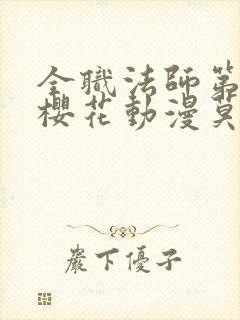 全職法師第
櫻花動漫莫
嚴下優子